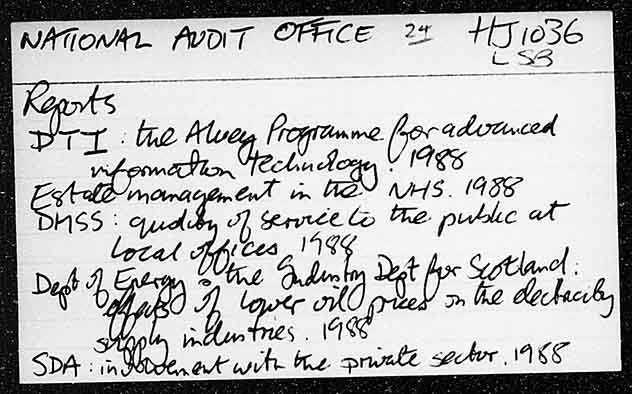 NATIONAL AUDIT OFFICE 24 HJ1036
LSB
Reports
DTI : the Alvey Programme for advanced
information technology. 1988
Estate management in the NHS. 1988
DHSS : quality of service to the public at
local offices 1988
Dept of Energy & the Industry Dept for Scotland :
effects of lower oil prices on the electricity
supply industries. 1988
SDA : involvement with the private sector. 1988